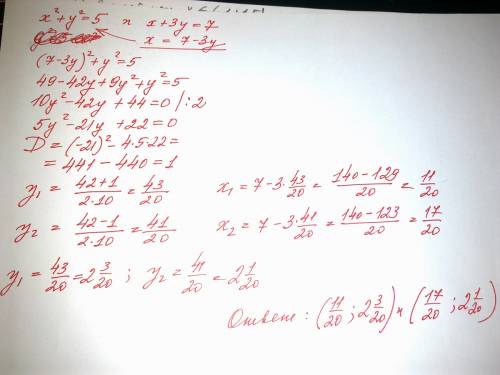 x²+y²=5 и x+3y=7
x = 7-3y
(7-3y)²+y²=5
49-42y+9y²+y²=5
10y²-42y+44=0 /:2
5y²-21y+22=0
D=(-21)²-4·5·22=
= 441-440=1
y₁ = (42+1)/(2·10) = 43/20 x₁ = 7-3·43/20 = (140-129)/20 = 11/20
y₂ = (42-1)/(2·10) = 41/20 x₂ = 7-3·41/20 = (140-123)/20 = 17/20
y₁ = 43/20 = 2 3/20 ; y₂ = 41/20 = 2 1/20
Ответ: (11/20 ; 2 3/20) и (17/20 ; 2 1/20)